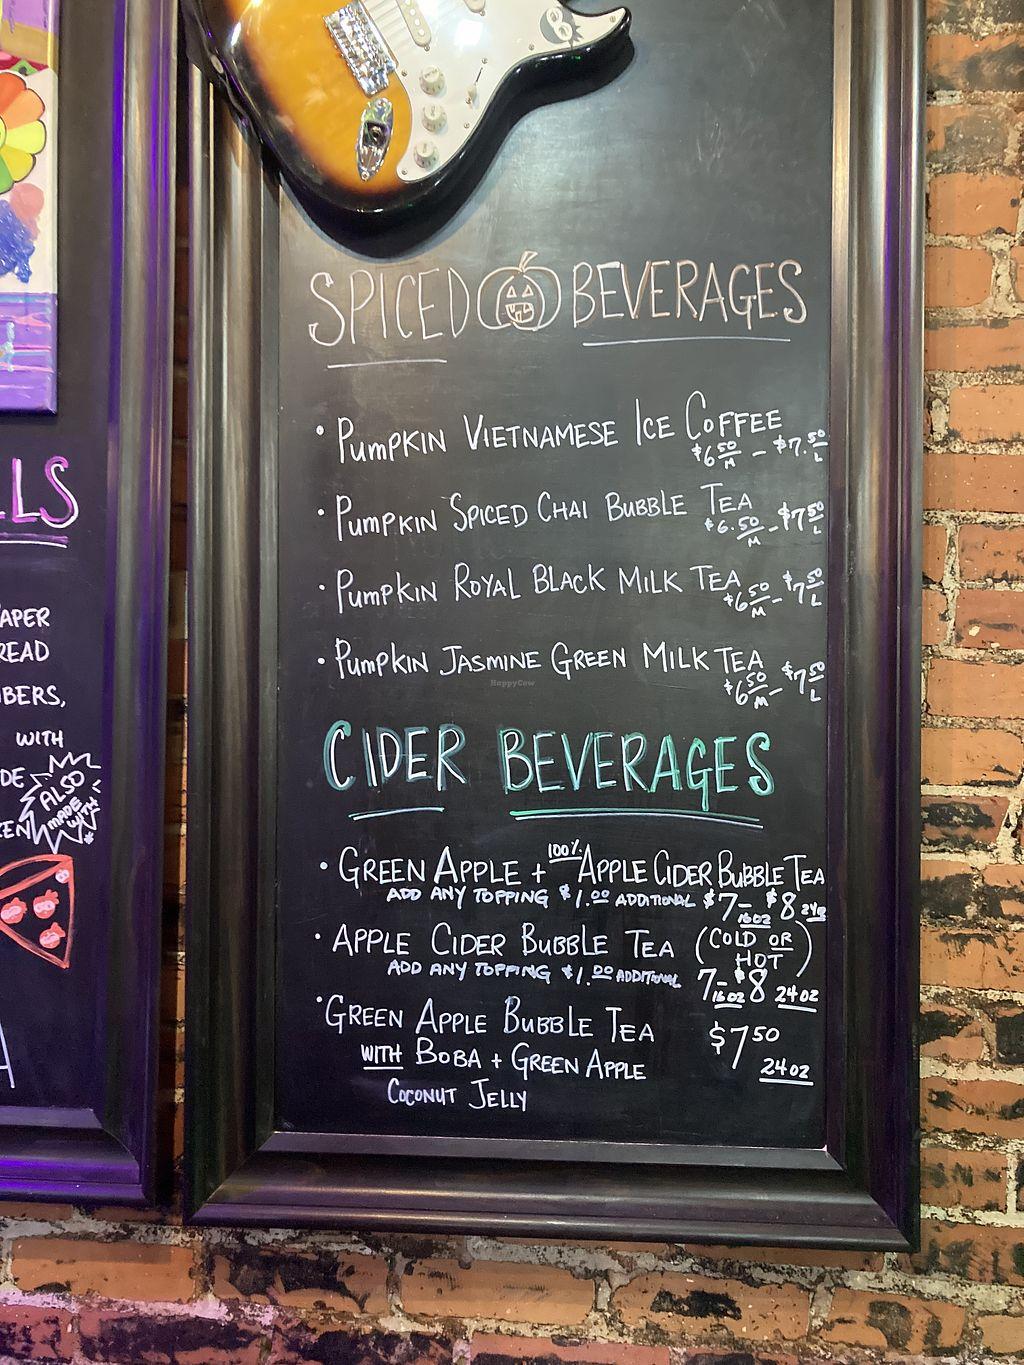 LLS
APER
READ
BERS,
WITH
DE
ALSO
MADE
WITH
EN
A
SPICED BEVERAGES
• PUMPKIN VIETNAMESE ICE COFFEE
$6 50 M - $7.50 L
• PUMPKIN SPICED CHAI BUBBLE TEA
$6.50 M - $7 50 L
• PUMPKIN ROYAL BLACK MILK TEA
$6 50 M - $7 50 L
• PUMPKIN JASMINE GREEN MILK TEA
$6 50 M - $7 50 L
HappyCow
CIDER BEVERAGES
• GREEN APPLE + 100% APPLE CIDER BUBBLE TEA
ADD ANY TOPPING $1.00 ADDITIONAL $7 16 OZ - $8
• APPLE CIDER BUBBLE TEA (COLD OR HOT)
ADD ANY TOPPING $1.00 ADDITIONAL 7 16 OZ - $8 24 OZ
• GREEN APPLE BUBBLE TEA $7 50
WITH BOBA + GREEN APPLE 24 OZ
COCONUT JELLY